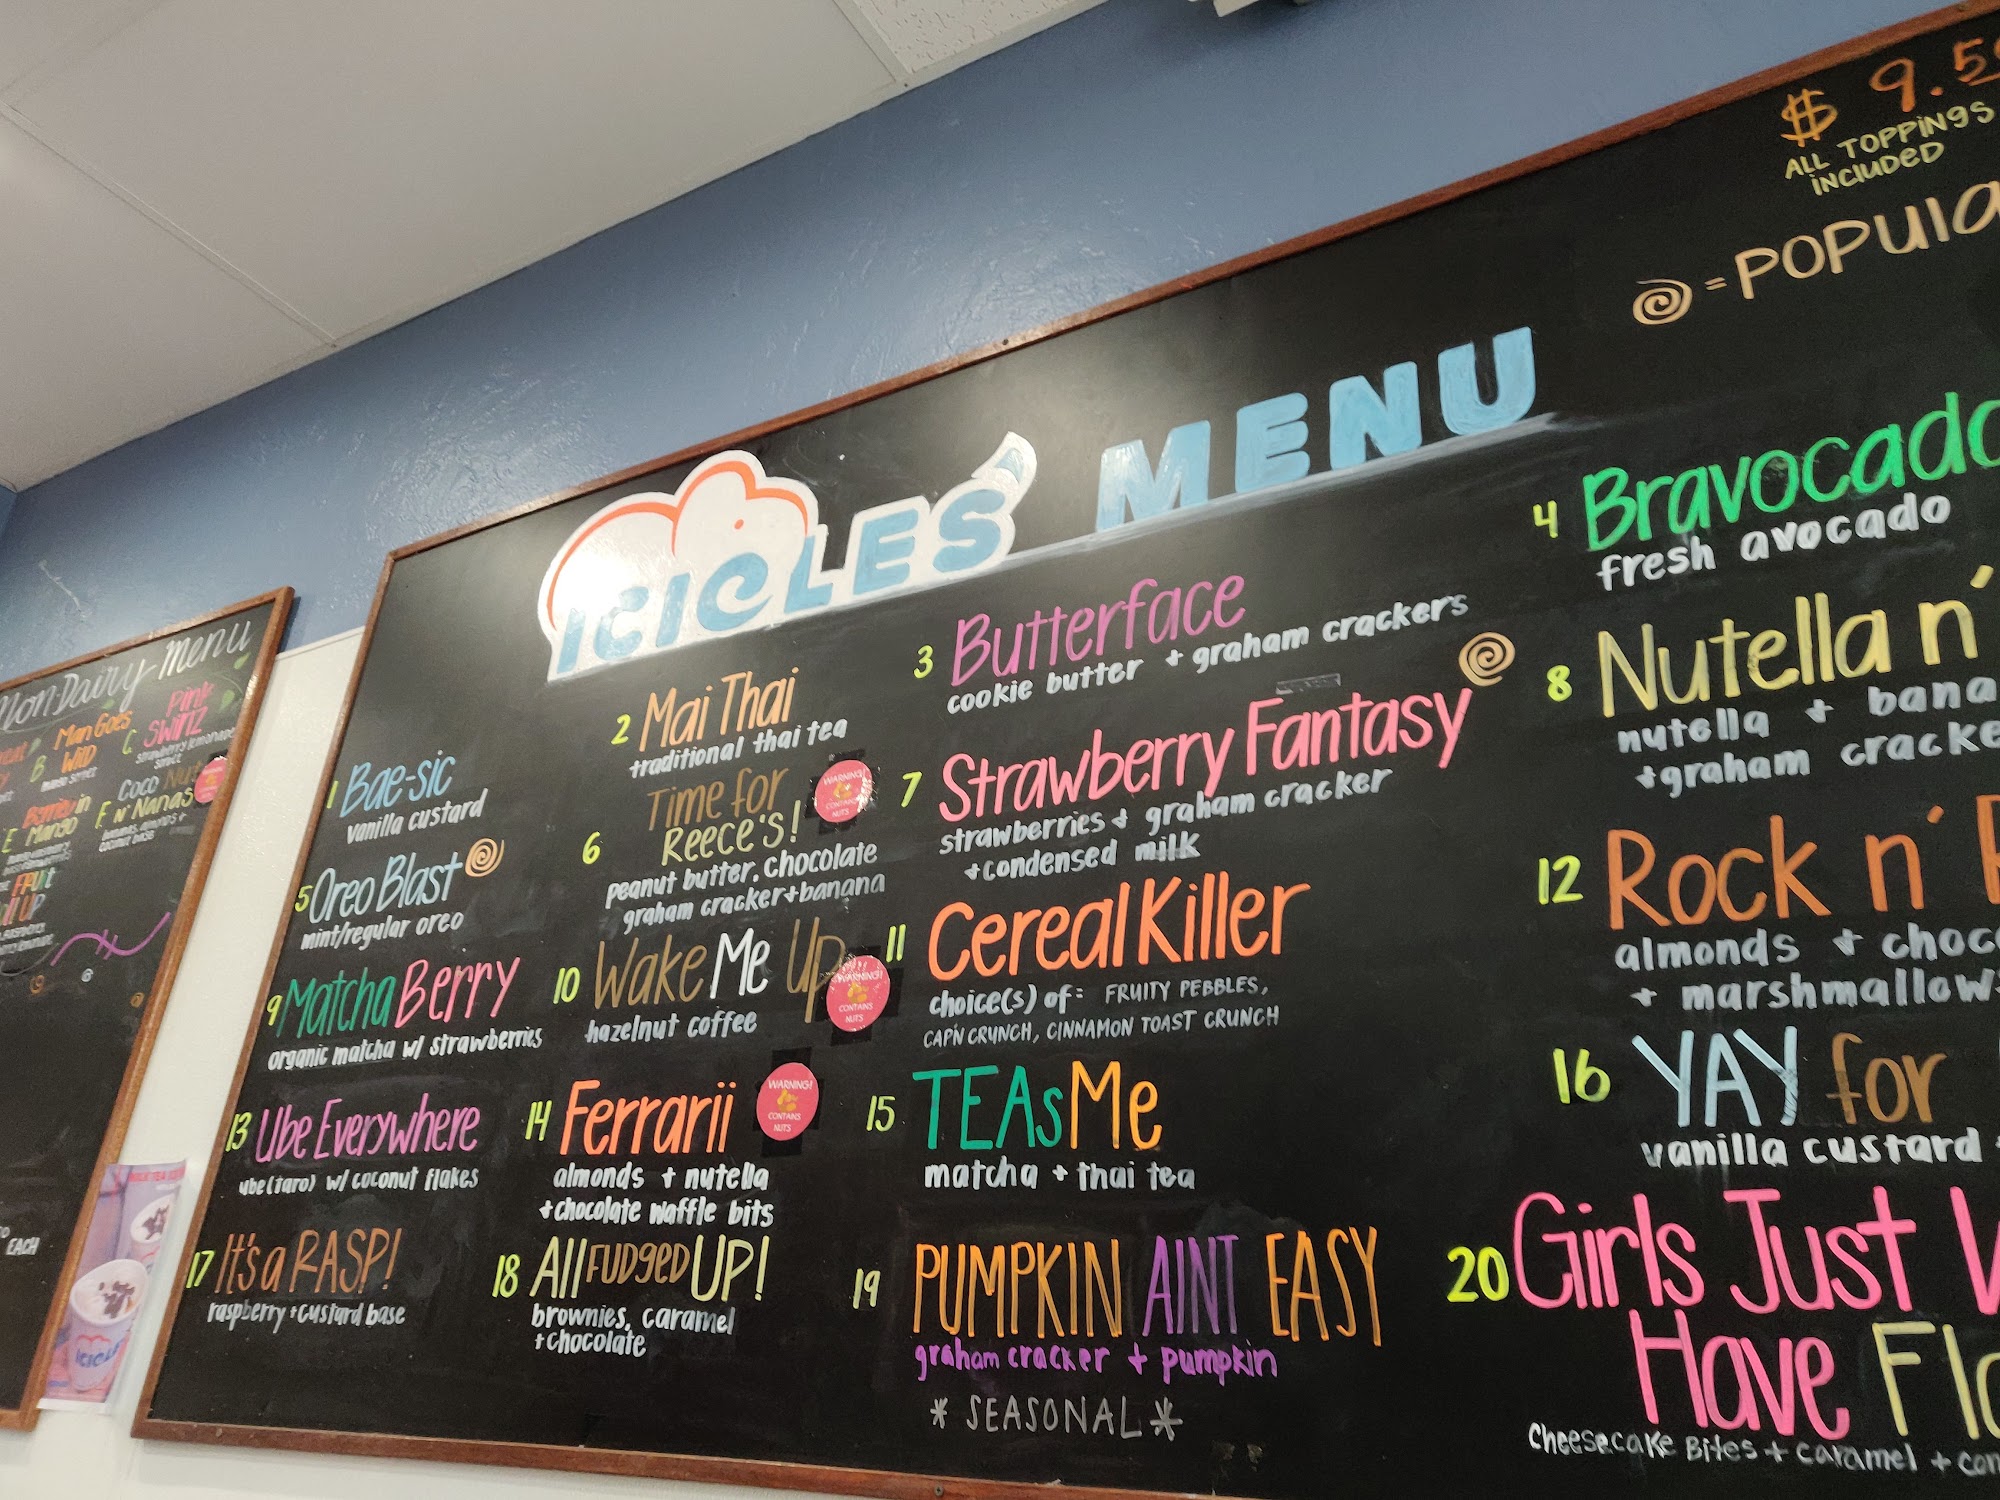 $ 9.5
ALL TOPPINGS
INCLUDED
= POPULA
ICICLES MENU
1 Bae-sic
vanilla custard
2 Mai Thai
traditional thai tea
3 Butterface
cookie butter + graham crackers
4 Bravocado
fresh avocado
5 Oreo Blast
mint/regular oreo
6 Time for
Reece's!
peanut butter, Chocolate
graham cracker + banana
WARNING!
CONTAINS
NUTS
7 Strawberry Fantasy
strawberries + graham cracker
+ condensed milk
8 Nutella n'
nutella + bana
+ graham cracke
9 Matcha Berry
organic matcha w/ strawberries
10 Wake Me Up
hazelnut coffee
WARNING!
CONTAINS
NUTS
11 Cereal Killer
choice(s) of: FRUITY PEBBLES,
CAP'N CRUNCH, CINNAMON TOAST CRUNCH
12 Rock n'
almonds + choc
+ marshmallow
13 Ube Everywhere
ube (taro) w/ coconut flakes
14 Ferrarii
almonds + nutella
+ chocolate waffle bits
WARNING!
CONTAINS
NUTS
15 TEAs Me
matcha + thai tea
16 YAY for
vanilla custard
17 It's a RASP!
raspberry + custard base
18 All FUDGED UP!
brownies, caramel
+ chocolate
19 PUMPKIN AINT EASY
graham cracker + pumpkin
* SEASONAL *
20 Girls Just
Have
Cheesecake Bites + caramel +
Non-Dairy Menu
B Man Goes
Wild
mango sorbet
C Pink
Swirlz
strawberry lemonade
sorbet
E Berries in
Mango
F Coco Nut
n' Nanas
bananas, almonds +
coconut base
EACH
ICICLES